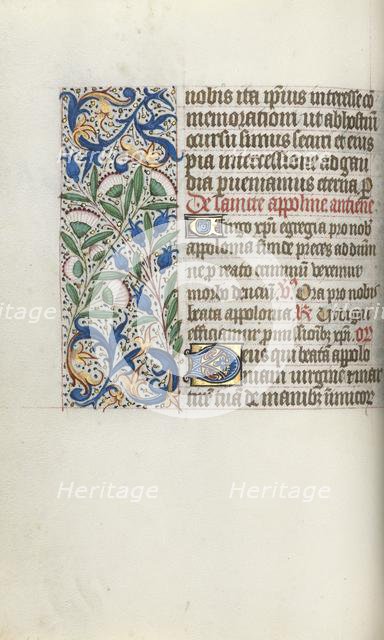 nobis ita ipsius interesse co
memorationi ut ab hostiu
cursu simus securi et eius
pia intercessione ad gau
dia pueniamus eterna P
De saincte appoline antiene
Virgo xpi egregia pro nob
appolonia funde preces ad dnm
ne p reatu criminum vexemur
morbo dencium Vs Ora pro nobis
beata appolonia R Vt digni
efficiamur promissionib xpi or
Deus qui beata appolo
niam virginē mar
tirē tuā de manibz inimicor
Heritage Heritage
Heritage Heritage
Heritage Heritage